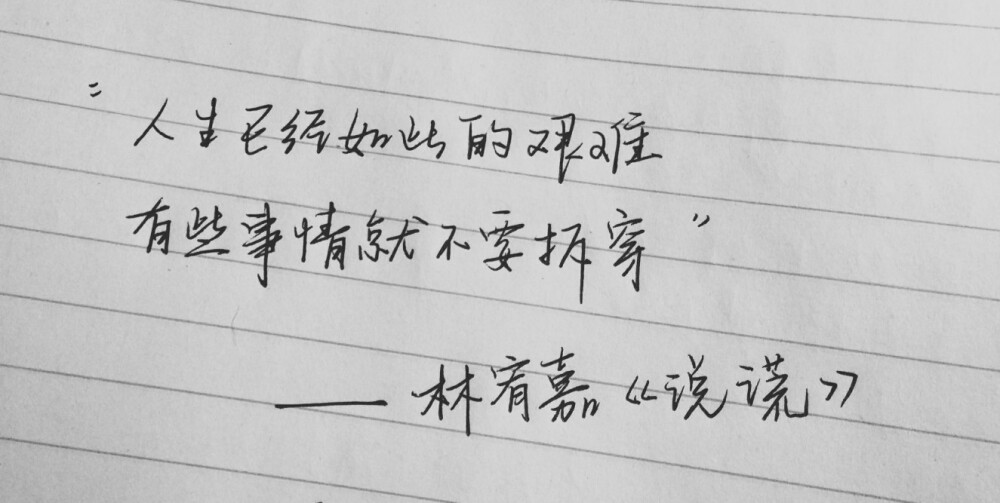 "人生已经如此的艰难
有些事情就不要拆穿"
——林宥嘉《说谎》